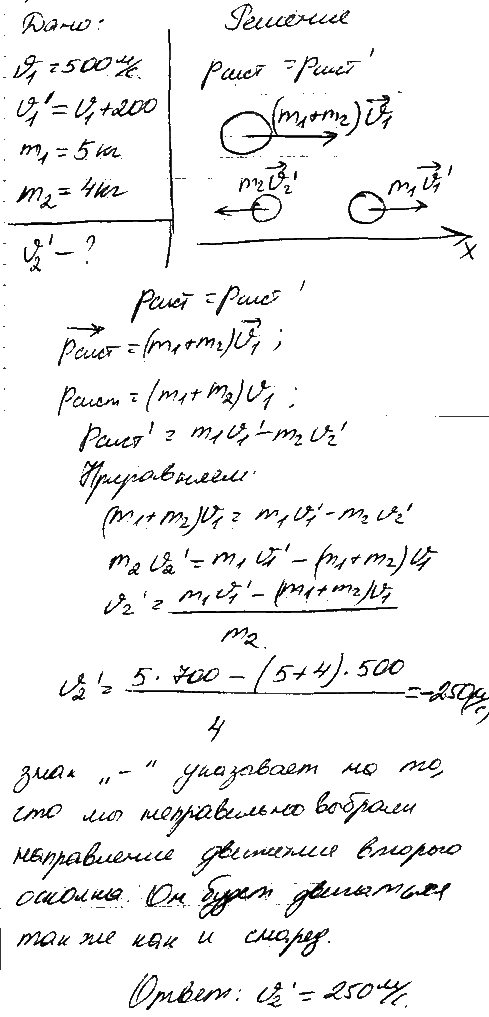 Дано:
v₁ = 500 м/с.
v₁' = v₁+200
m₁ = 5 кг
m₂ = 4 кг
v₂' – ?
Решение
Pсист = Pсист'
(m₁+m₂)v⃗₁
m₂v⃗₂' m₁v⃗₁'
x
Pсист = Pсист'
P⃗сист = (m₁+m₂)v⃗₁;
Pсист = (m₁+m₂)v₁;
Pсист' = m₁v₁' – m₂v₂'
Приравняем:
(m₁+m₂)v₁ = m₁v₁' – m₂v₂'
m₂v₂' = m₁v₁' – (m₁+m₂)v₁
v₂' = (m₁v₁' – (m₁+m₂)v₁) / m₂
v₂' = (5·700 – (5+4)·500) / 4 = –250 м/с,
знак „–“ указывает на то,
что мы неправильно выбрали
направление движения второго
осколка. Он будет двигаться
так же как и снаряд.
Ответ: v₂' = 250 м/с.